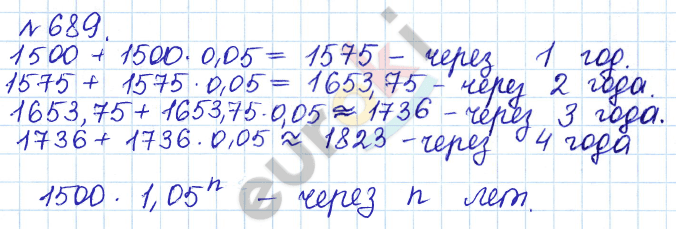 №689.
1500 + 1500·0,05 = 1575 – через 1 год.
1575 + 1575·0,05 = 1653,75 – через 2 года.
1653,75 + 1653,75·0,05 ≈ 1736 – через 3 года.
1736 + 1736·0,05 ≈ 1823 – через 4 года
1500 · 1,05ⁿ – через n лет.
euroki